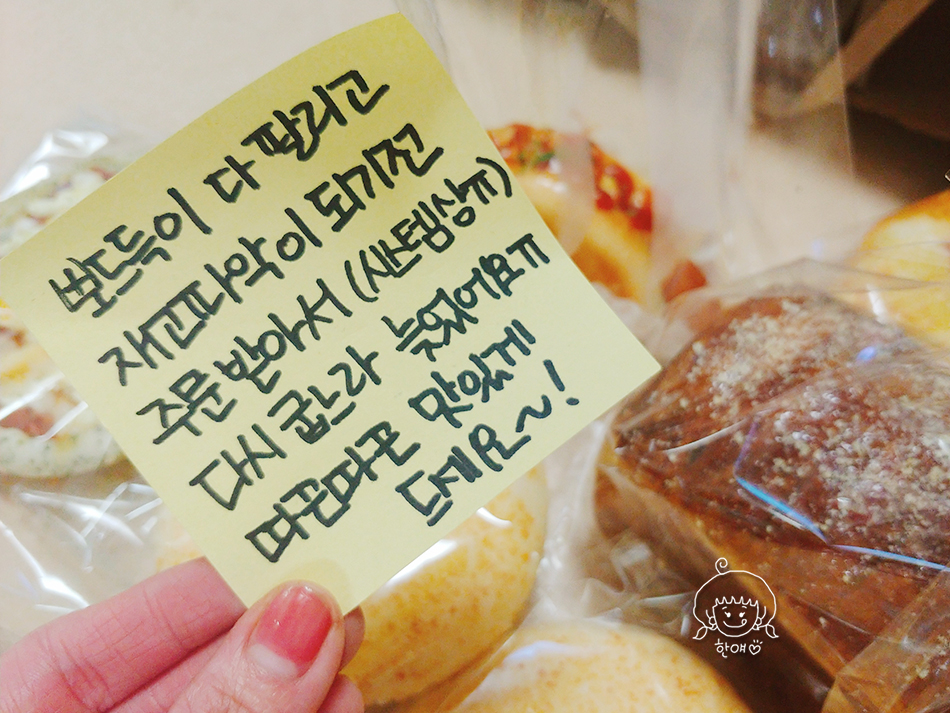 뽀드득이 다 팔리고
재고파악이 되기전
주문받아서 (시스템상ㅠ)
다시 굽느라 늦었어요ㅠ
따끈따끈 맛있게
드세요~!
한얘♡